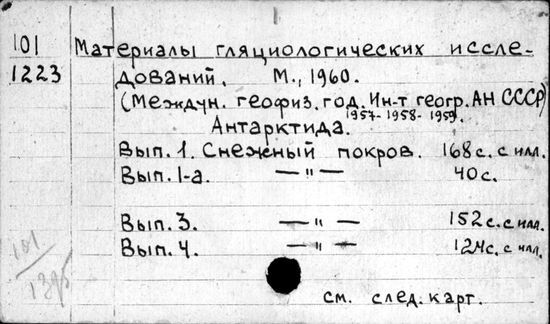 101 Материалы гляциологических иссле-
1223 дований. М., 1960.
(Междун. геофиз. год. Ин-т геогр. АН СССР)
1957-1958-1959.
Антарктида.
Вып. 1. Снежный покров. 168 с. с илл.
Вып. 1-а. — " — 40 с.
Вып. 3. — " — 152 с. с илл.
Вып. 4. — " — 124 с. с илл.
101
1395
см. след. карт.